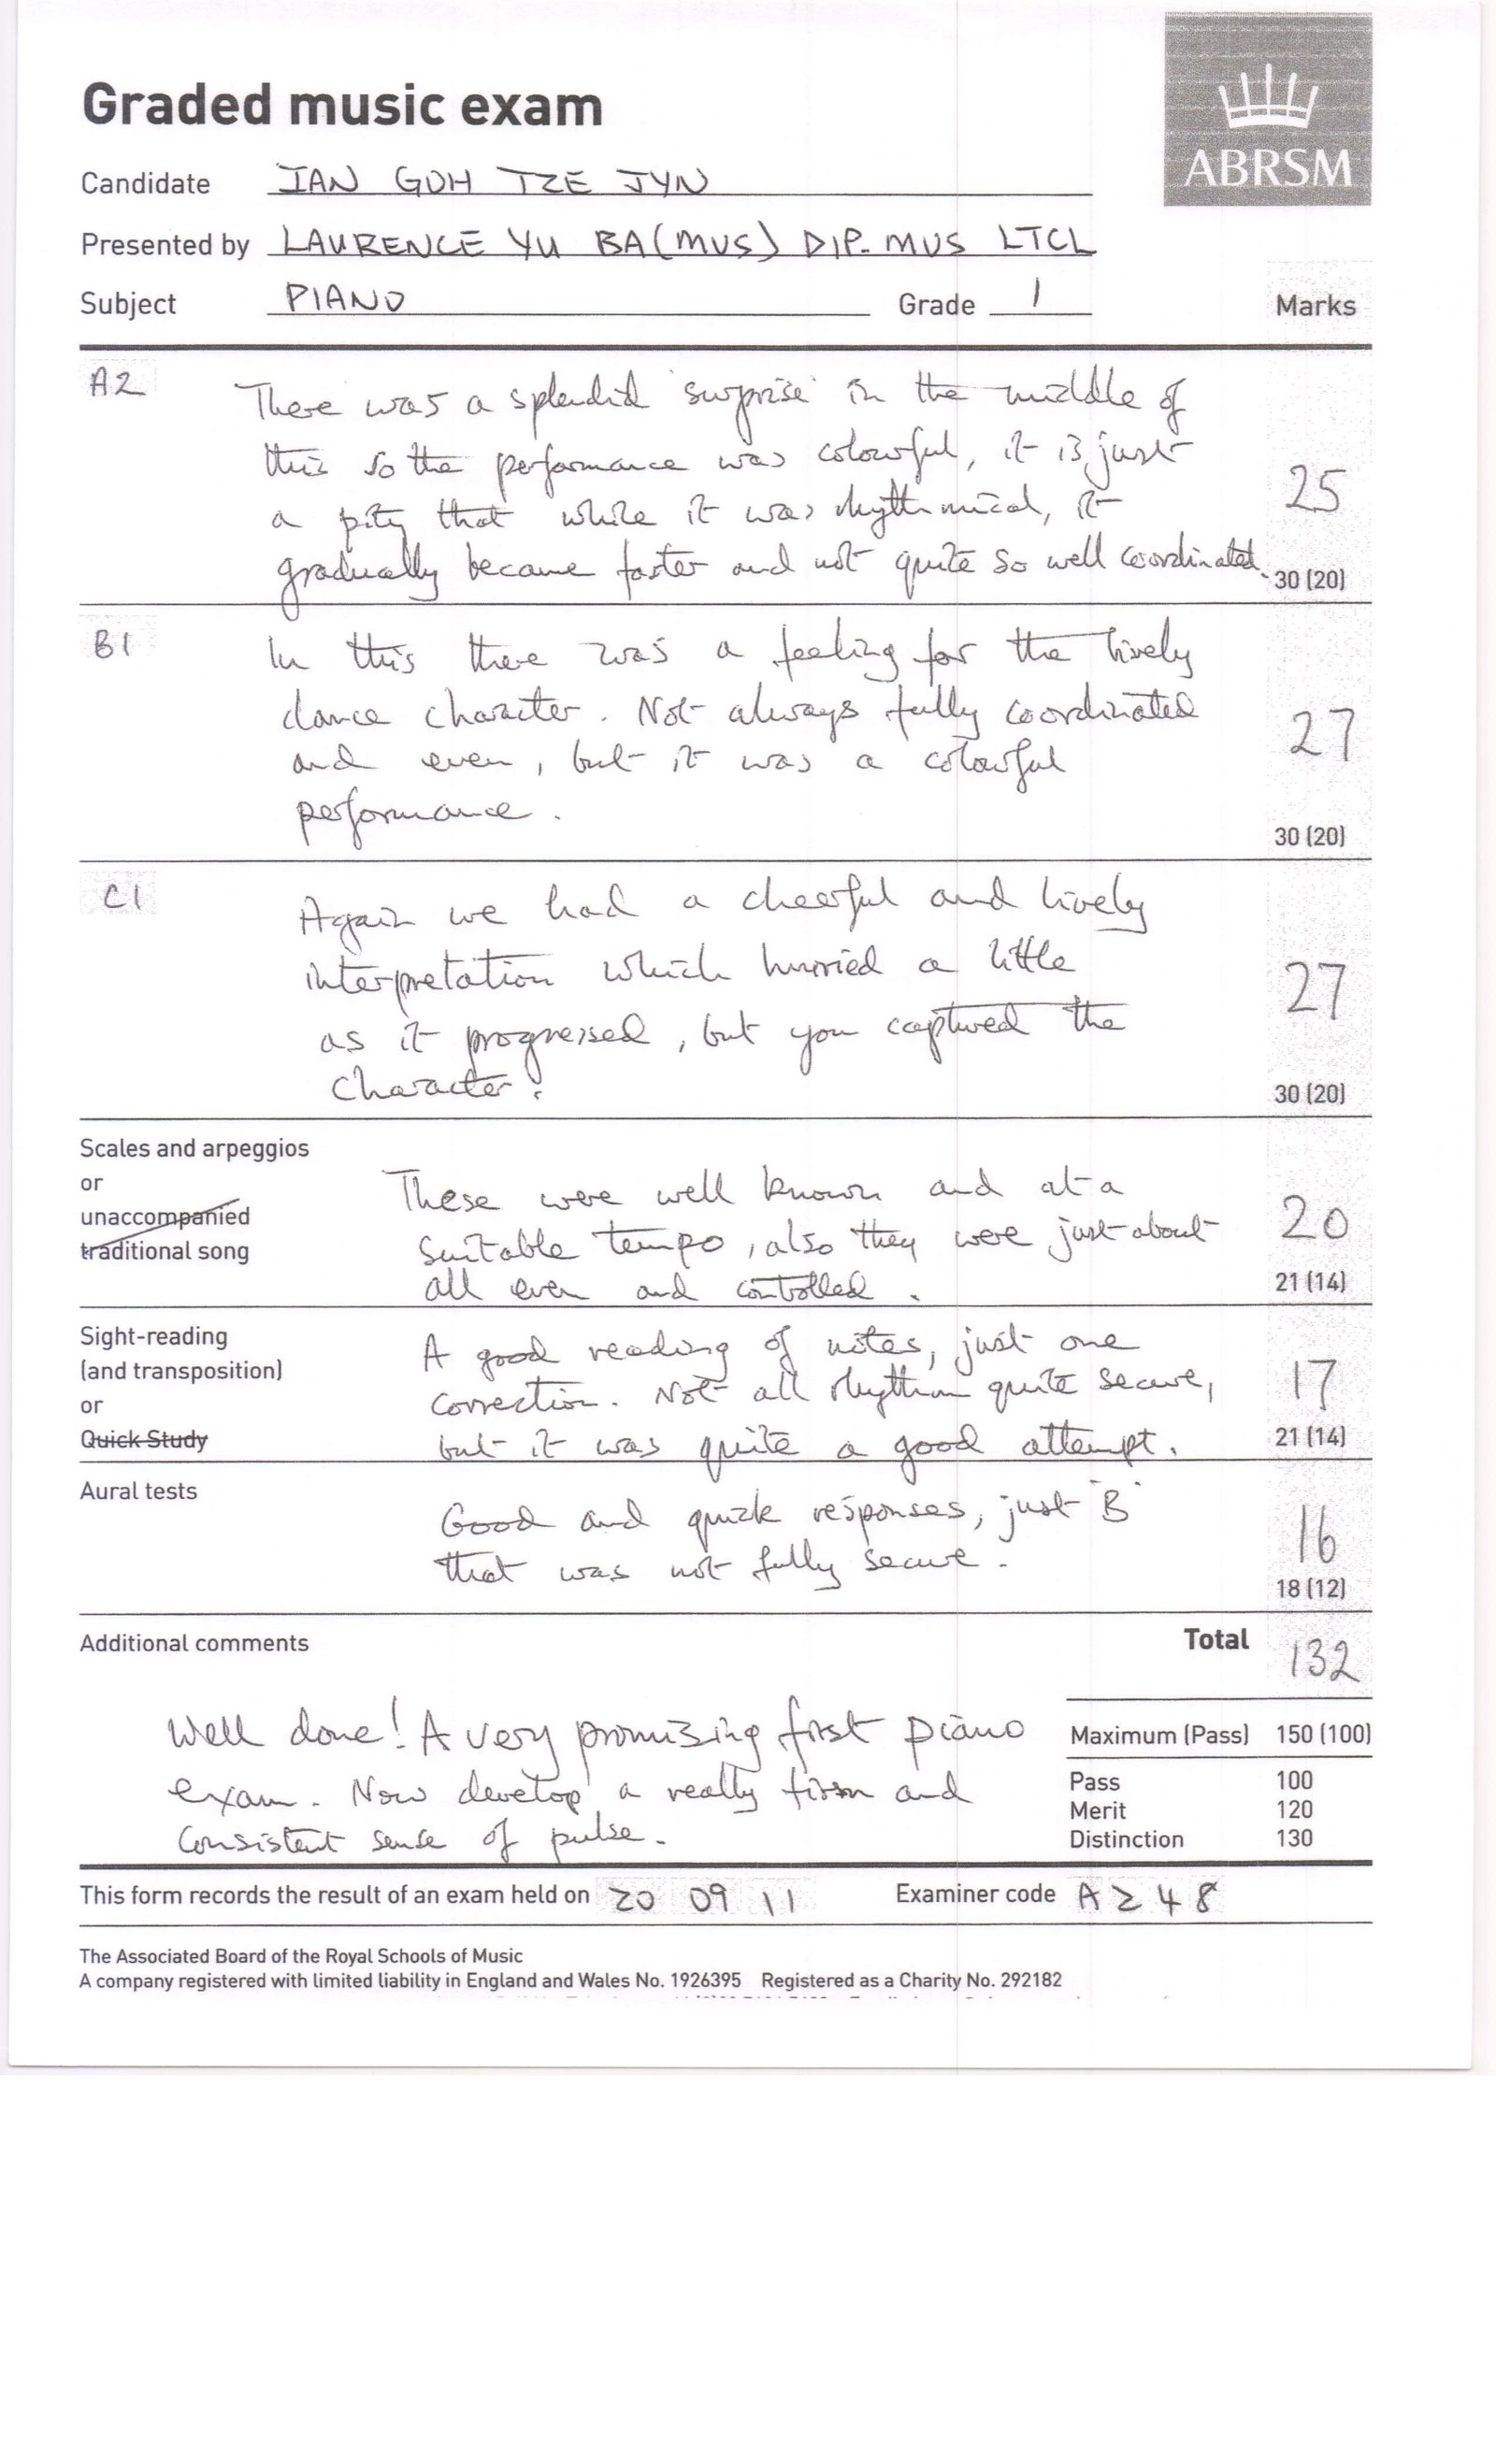 Graded music exam
ABRSM
Candidate IAN GOH TZE JYN
Presented by LAURENCE YU BA(MUS) DIP. MUS LTCL
Subject PIANO Grade 1 Marks
A2 There was a splendid 'surprise' in the middle of
this so the performance was colourful, it is just
a pity that while it was rhythmical, it 25
gradually became faster and not quite so well coordinated. 30 (20)
B1 In this there was a feeling for the lively
dance character. Not always fully coordinated 27
and even, but it was a colourful
performance.
30 (20)
C1 Again we had a cheerful and lively
interpretation which hurried a little 27
as it progressed, but you captured the
character!
30 (20)
Scales and arpeggios
or These were well known and at a
unaccompanied suitable tempo, also they were just about 20
traditional song all even and controlled. 21 (14)
Sight-reading A good reading of notes, just one
(and transposition) correction. Not all rhythm quite secure, 17
or
Quick Study but it was quite a good attempt. 21 (14)
Aural tests Good and quick responses, just 'B'
that was not fully secure. 16
18 (12)
Additional comments Total 132
Well done! A very promising first piano Maximum (Pass) 150 (100)
exam. Now develop a really firm and Pass 100
Merit 120
consistent sense of pulse. Distinction 130
This form records the result of an exam held on 20 09 11 Examiner code A248
The Associated Board of the Royal Schools of Music
A company registered with limited liability in England and Wales No. 1926395 Registered as a Charity No. 292182